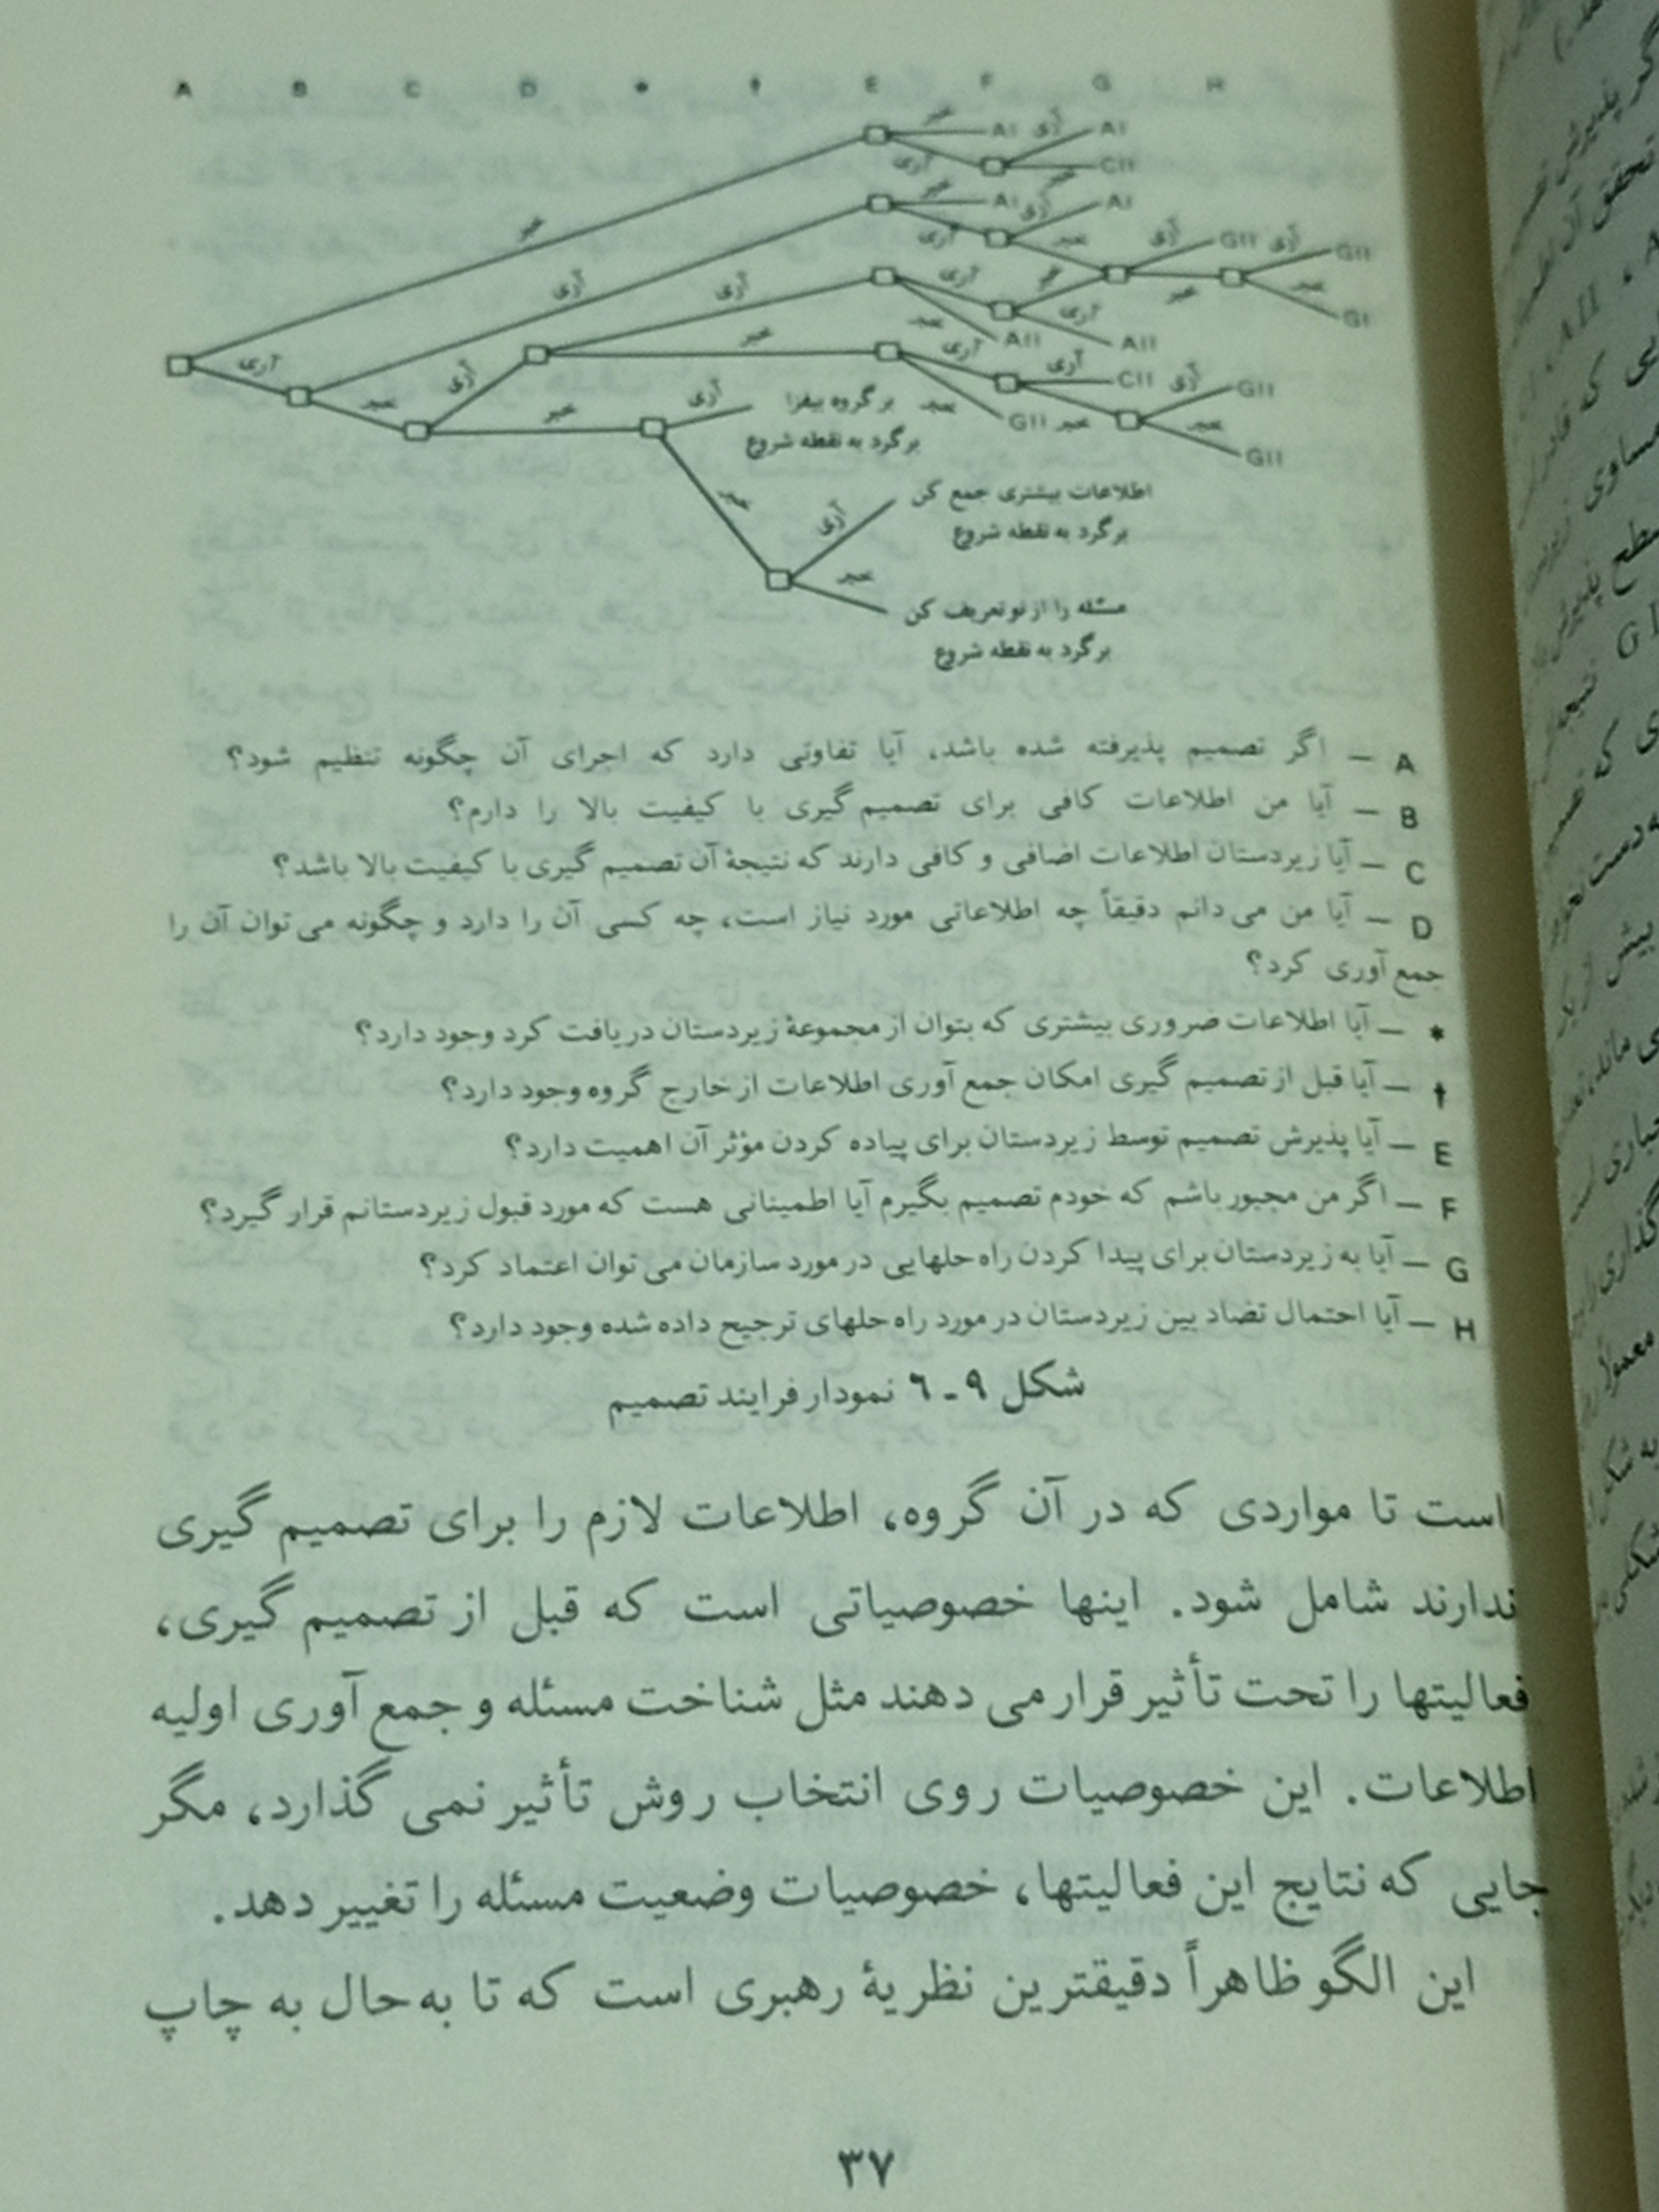 A B C D * † E F G H
خیر AI آری AI
آری CII
خیر
خیر AI آری AI
خیر
آری خیر آری GII آری GII
آری آری آری خیر خیر خیر
آری GI
خیر AII AII
آری خیر آری آری CII آری GII
خیر خیر آری بر گروه بیفزا خیر GII خیر خیر
برگرد به نقطه شروع GII
خیر آری اطلاعات بیشتری جمع کن
برگرد به نقطه شروع
خیر
مسئله را از نو تعریف کن
برگرد به نقطه شروع
A — اگر تصمیم پذیرفته شده باشد، آیا تفاوتی دارد که اجرای آن چگونه تنظیم شود؟
B — آیا من اطلاعات کافی برای تصمیم گیری با کیفیت بالا را دارم؟
C — آیا زیردستان اطلاعات اضافی و کافی دارند که نتیجۀ آن تصمیم گیری با کیفیت بالا باشد؟
D — آیا من می دانم دقیقاً چه اطلاعاتی مورد نیاز است، چه کسی آن را دارد و چگونه می توان آن را
جمع آوری کرد؟
* — آیا اطلاعات ضروری بیشتری که بتوان از مجموعۀ زیردستان دریافت کرد وجود دارد؟
† — آیا قبل از تصمیم گیری امکان جمع آوری اطلاعات از خارج گروه وجود دارد؟
E — آیا پذیرش تصمیم توسط زیردستان برای پیاده کردن مؤثر آن اهمیت دارد؟
F — اگر من مجبور باشم که خودم تصمیم بگیرم آیا اطمینانی هست که مورد قبول زیردستانم قرار گیرد؟
G — آیا به زیردستان برای پیدا کردن راه حلهایی در مورد سازمان می توان اعتماد کرد؟
H — آیا احتمال تضاد بین زیردستان در مورد راه حلهای ترجیح داده شده وجود دارد؟
شکل ۹ ـ ۶ نمودار فرایند تصمیم
است تا مواردی که در آن گروه، اطلاعات لازم را برای تصمیم گیری
ندارند شامل شود. اینها خصوصیاتی است که قبل از تصمیم گیری،
فعالیتها را تحت تأثیر قرار می دهند مثل شناخت مسئله و جمع آوری اولیه
اطلاعات. این خصوصیات روی انتخاب روش تأثیر نمی گذارد، مگر
جایی که نتایج این فعالیتها، خصوصیات وضعیت مسئله را تغییر دهد.
این الگو ظاهراً دقیقترین نظریۀ رهبری است که تا به حال به چاپ
۳۷